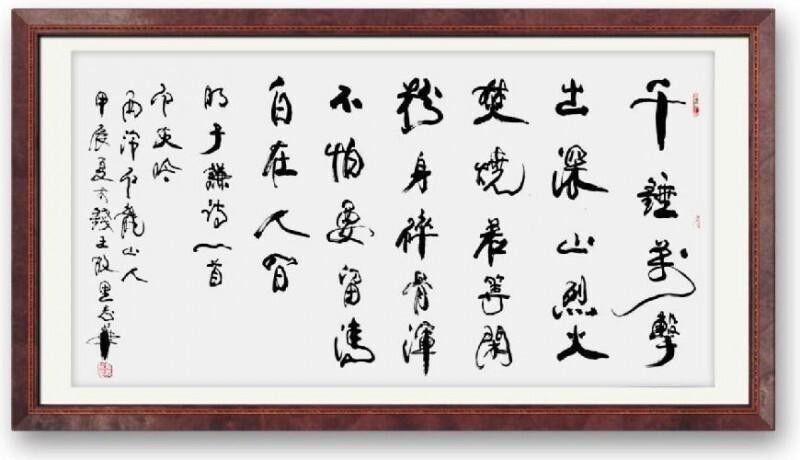 千錘萬擊
出深山烈火
焚燒若等閑
粉身碎骨渾
不怕要留清
白在人間
明于謙詩一首
石灰吟
龍山人
甲辰夏於錢王故里志華